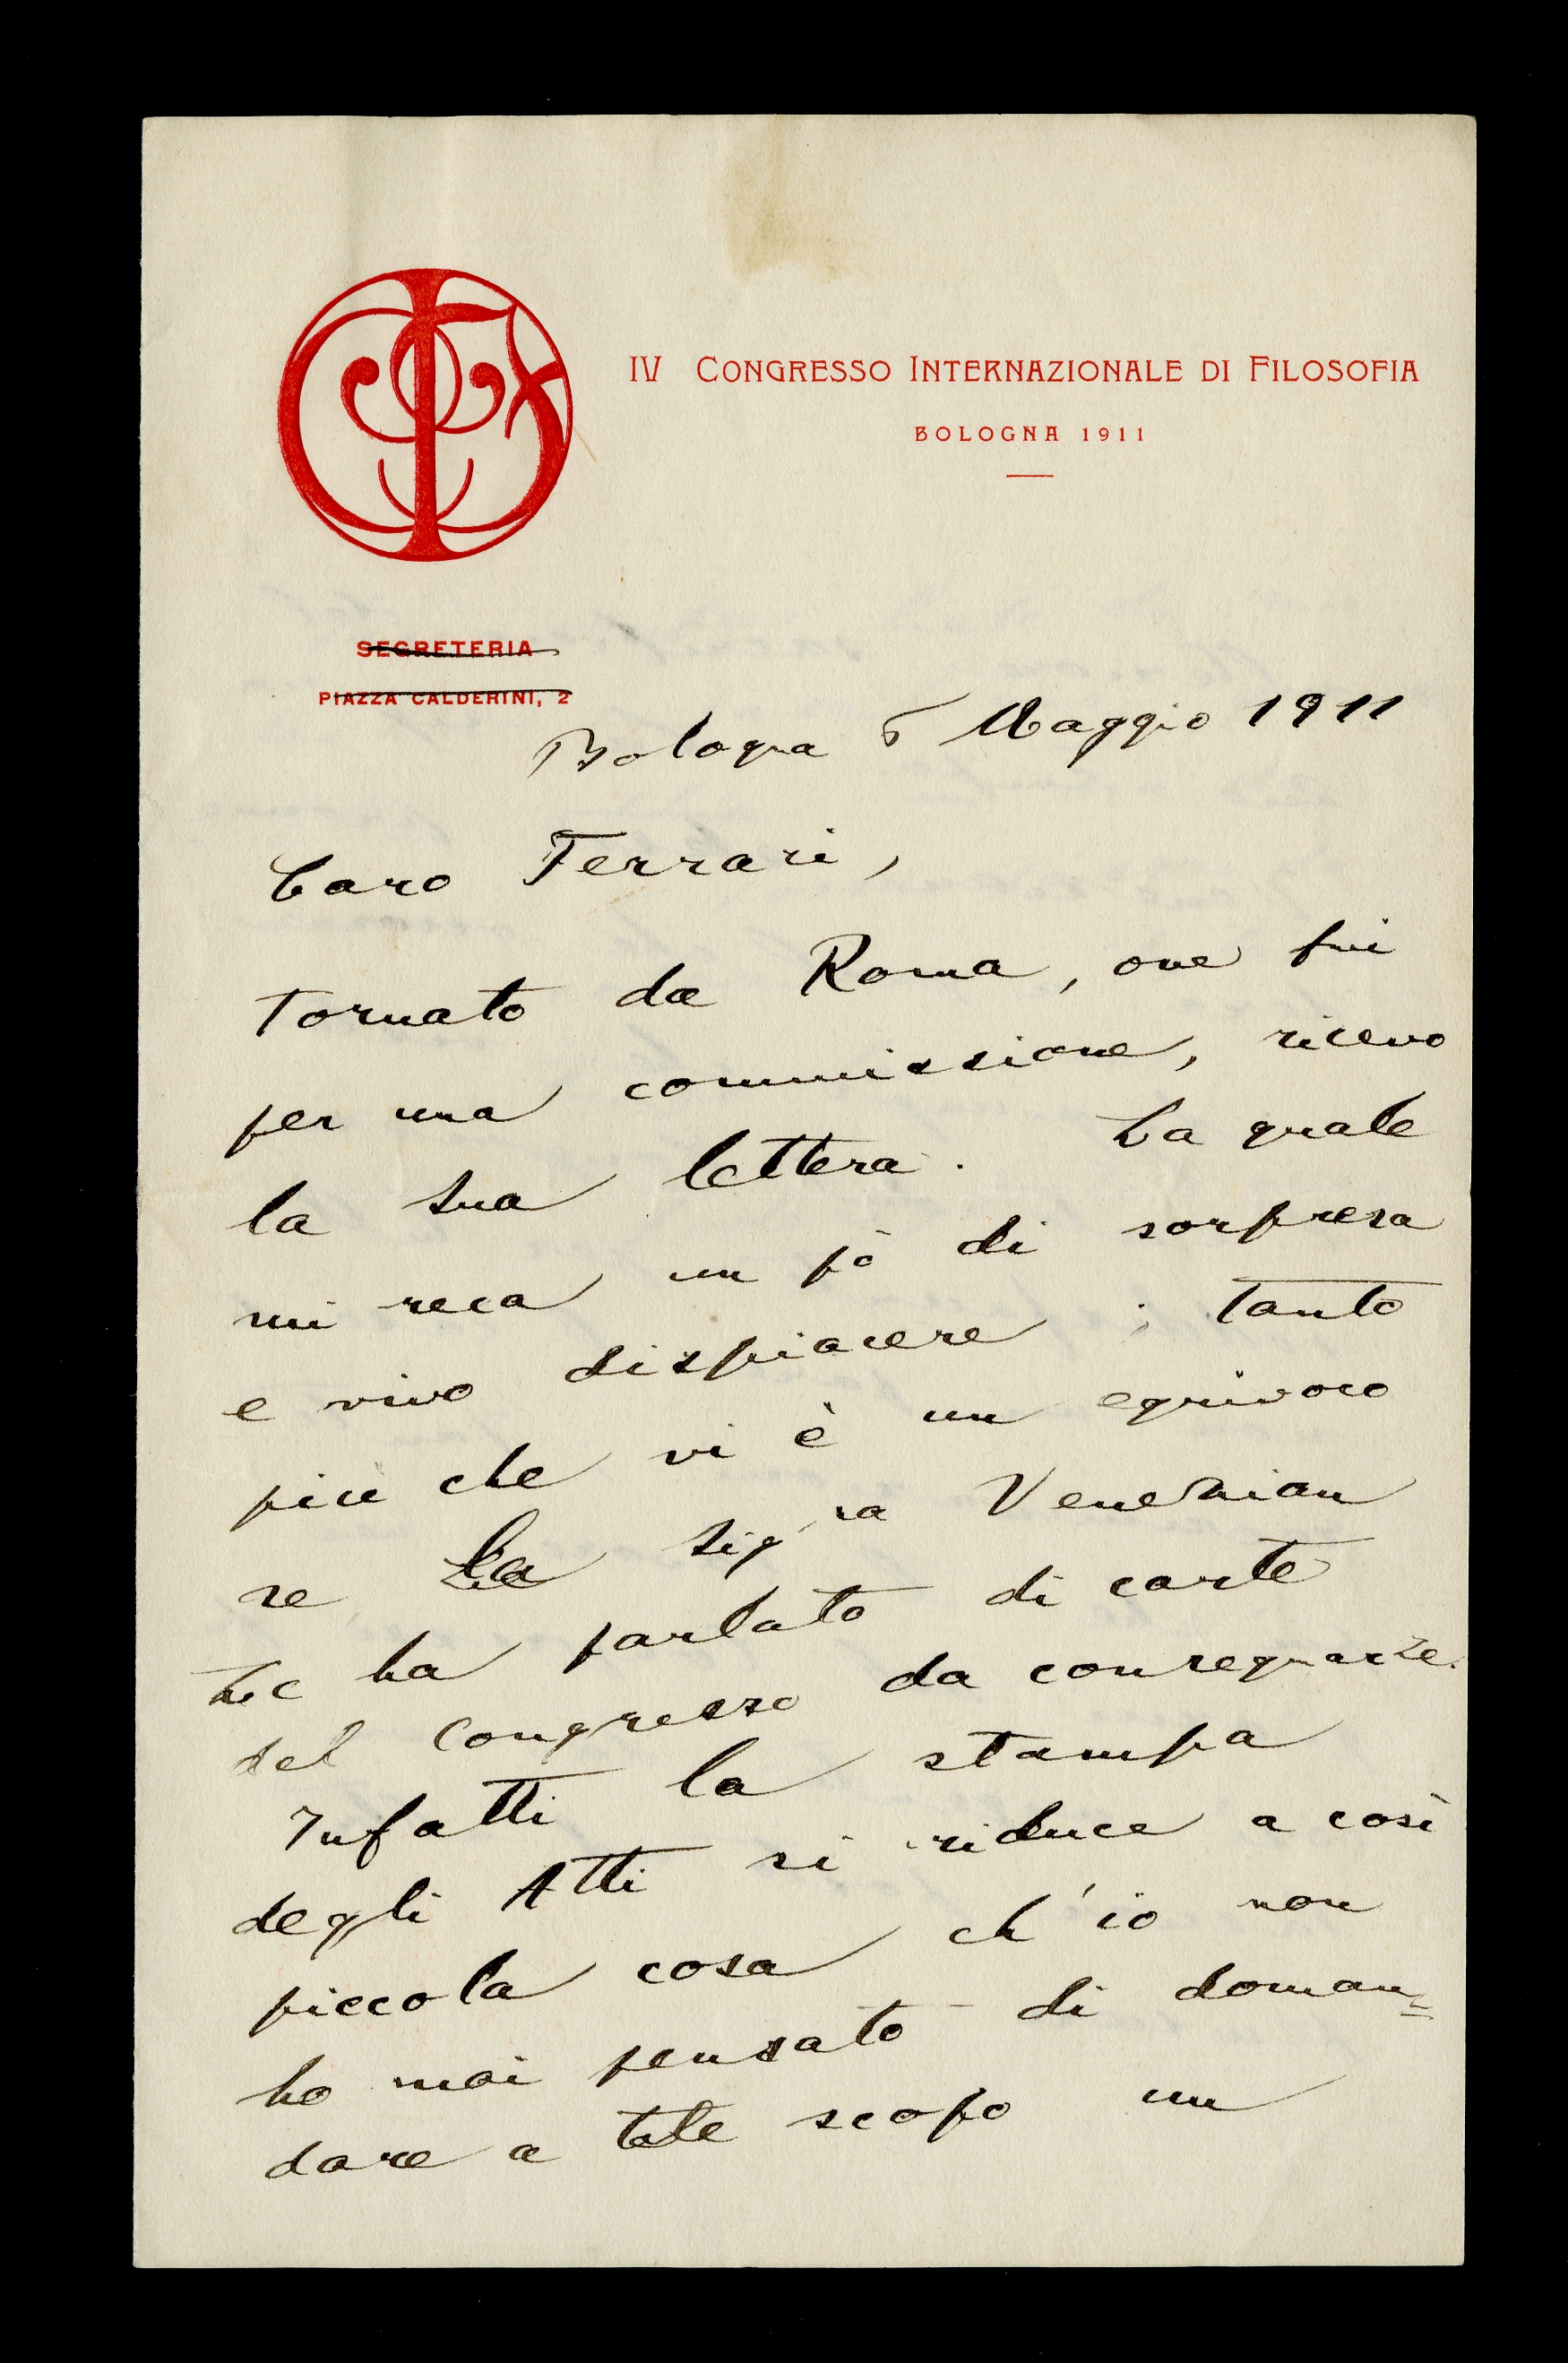 IV CONGRESSO INTERNAZIONALE DI FILOSOFIA
BOLOGNA 1911
SEGRETERIA
PIAZZA CALDERINI, 2
Bologna 5 Maggio 1911
Caro Ferrari,
Tornato da Roma, ove fui
per una commissione, ricevo
la sua lettera. La quale
mi reca un pò di sorpresa
e vivo dispiacere; tanto
più che vi è un equivoco
se la Sig.ra Venezian
Le ha parlato di carte
del Congresso da consegnarle.
Infatti la stampa
degli Atti si riduce a così
piccola cosa ch'io non
ho mai pensato di doman=
dare a tale scopo un